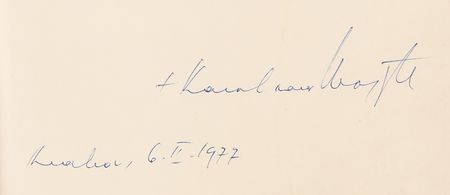 + Karol card Wojtyła
Kraków, 6.II.1977